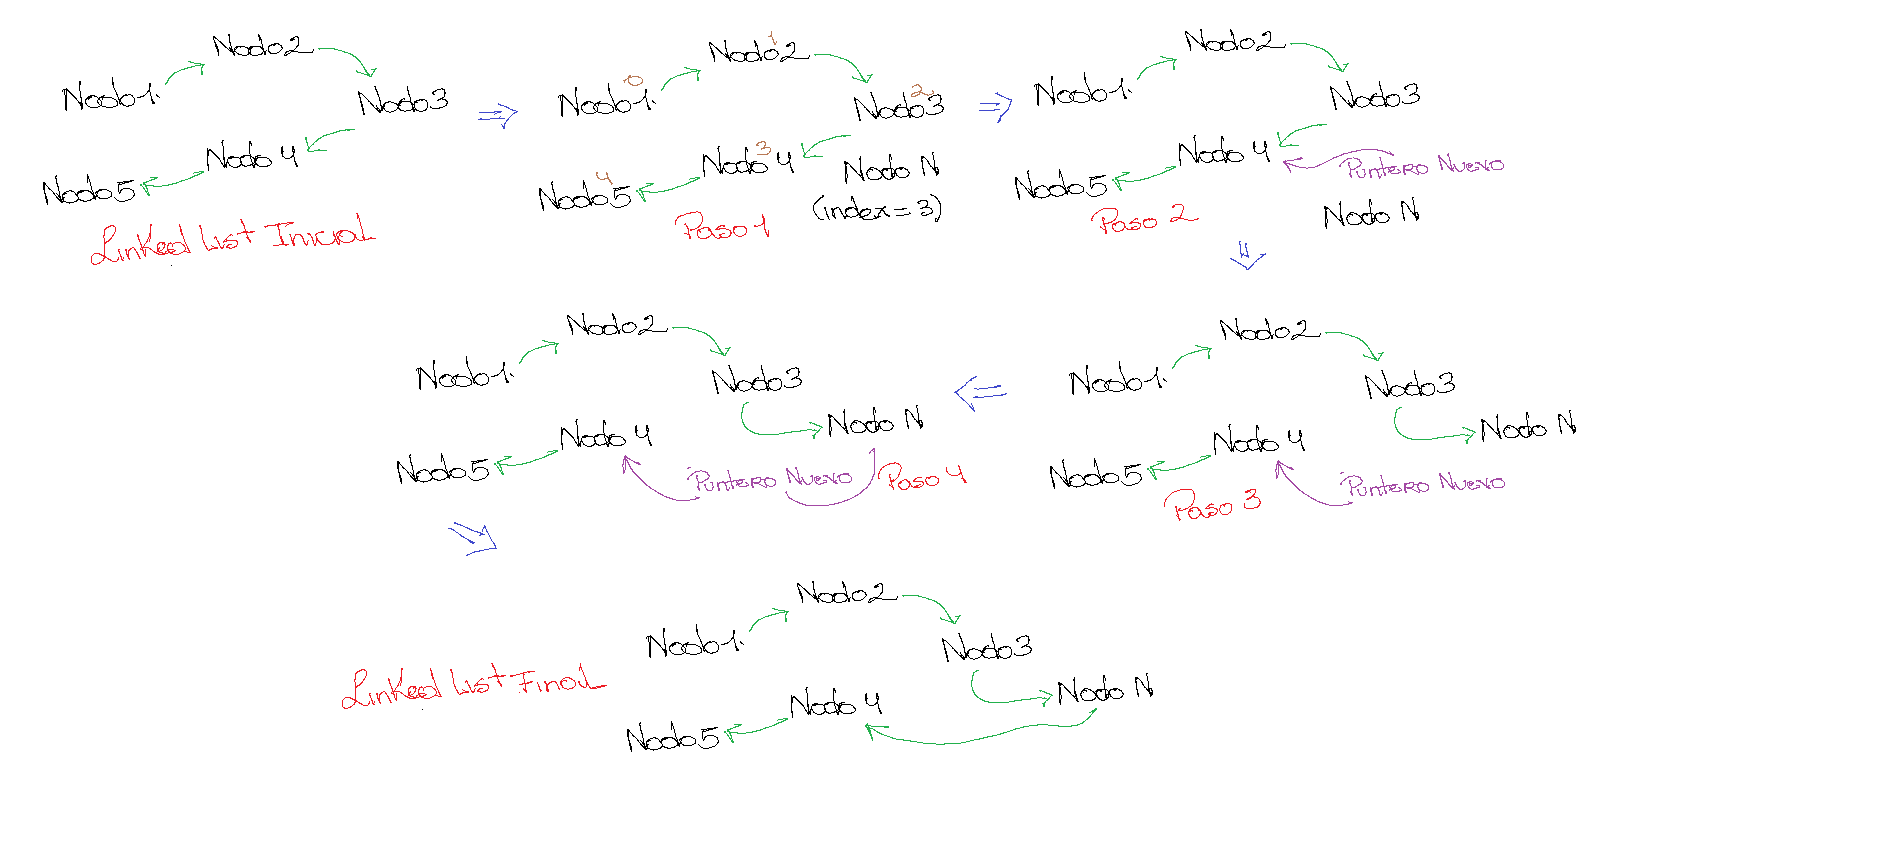 Nodo2
Nodo1.
Nodo3
Nodo 4
Nodo5
Linked List Inicial
1
Nodo2
0
Nodo1.
2
Nodo3
3
Nodo 4
Nodo N
4
Nodo5
(index=3)
Paso 1
Nodo2
Nodo1.
Nodo3
Nodo 4
Puntero Nuevo
Nodo5
Paso 2
Nodo N
Nodo2
Nodo1.
Nodo3
Nodo N
Nodo 4
Nodo5
Puntero Nuevo
Paso 3
Nodo2
Nodo1.
Nodo3
Nodo N
Nodo 4
Nodo5
Puntero Nuevo
Paso 4
Nodo2
Nodo1.
Nodo3
Linked List Final
Nodo N
Nodo 4
Nodo5